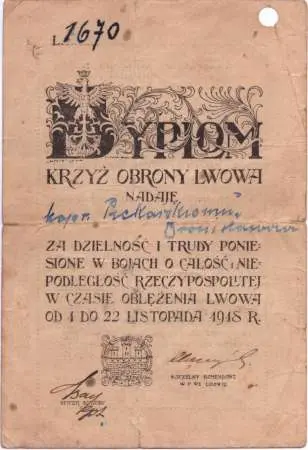 L. 1670
DYPLOM
KRZYŻ OBRONY LWOWA
NADAJE
kapr. Piekarskiemu
Bronisławowi
ZA DZIELNOŚĆ I TRUDY PONIE-
SIONE W BOJACH O CAŁOŚĆ I NIE-
PODLEGŁOŚĆ RZECZYPOSPOLITEJ
W CZASIE OBLĘŻENIA LWOWA
OD 1 DO 22 LISTOPADA 1918 R.
NACZELNY KOMENDANT
W P WE LWOWIE